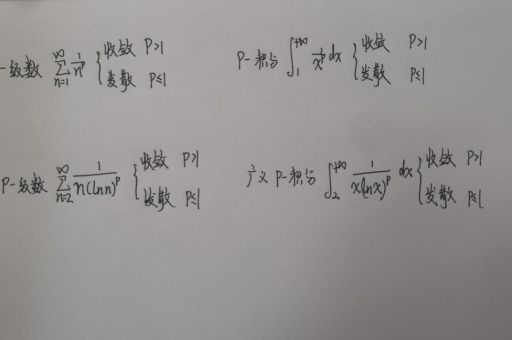 -级数 ∑_{n=1}^{∞} 1/n^p { 收敛 P>1 发散 P≤1
P-积分 ∫_1^{+∞} 1/x^p dx { 收敛 P>1 发散 P≤1
P-级数 ∑_{n=2}^{∞} 1/(n(ln n)^p) { 收敛 P>1 发散 P≤1
广义P-积分 ∫_2^{+∞} 1/(x(ln x)^p) dx { 收敛 P>1 发散 P≤1